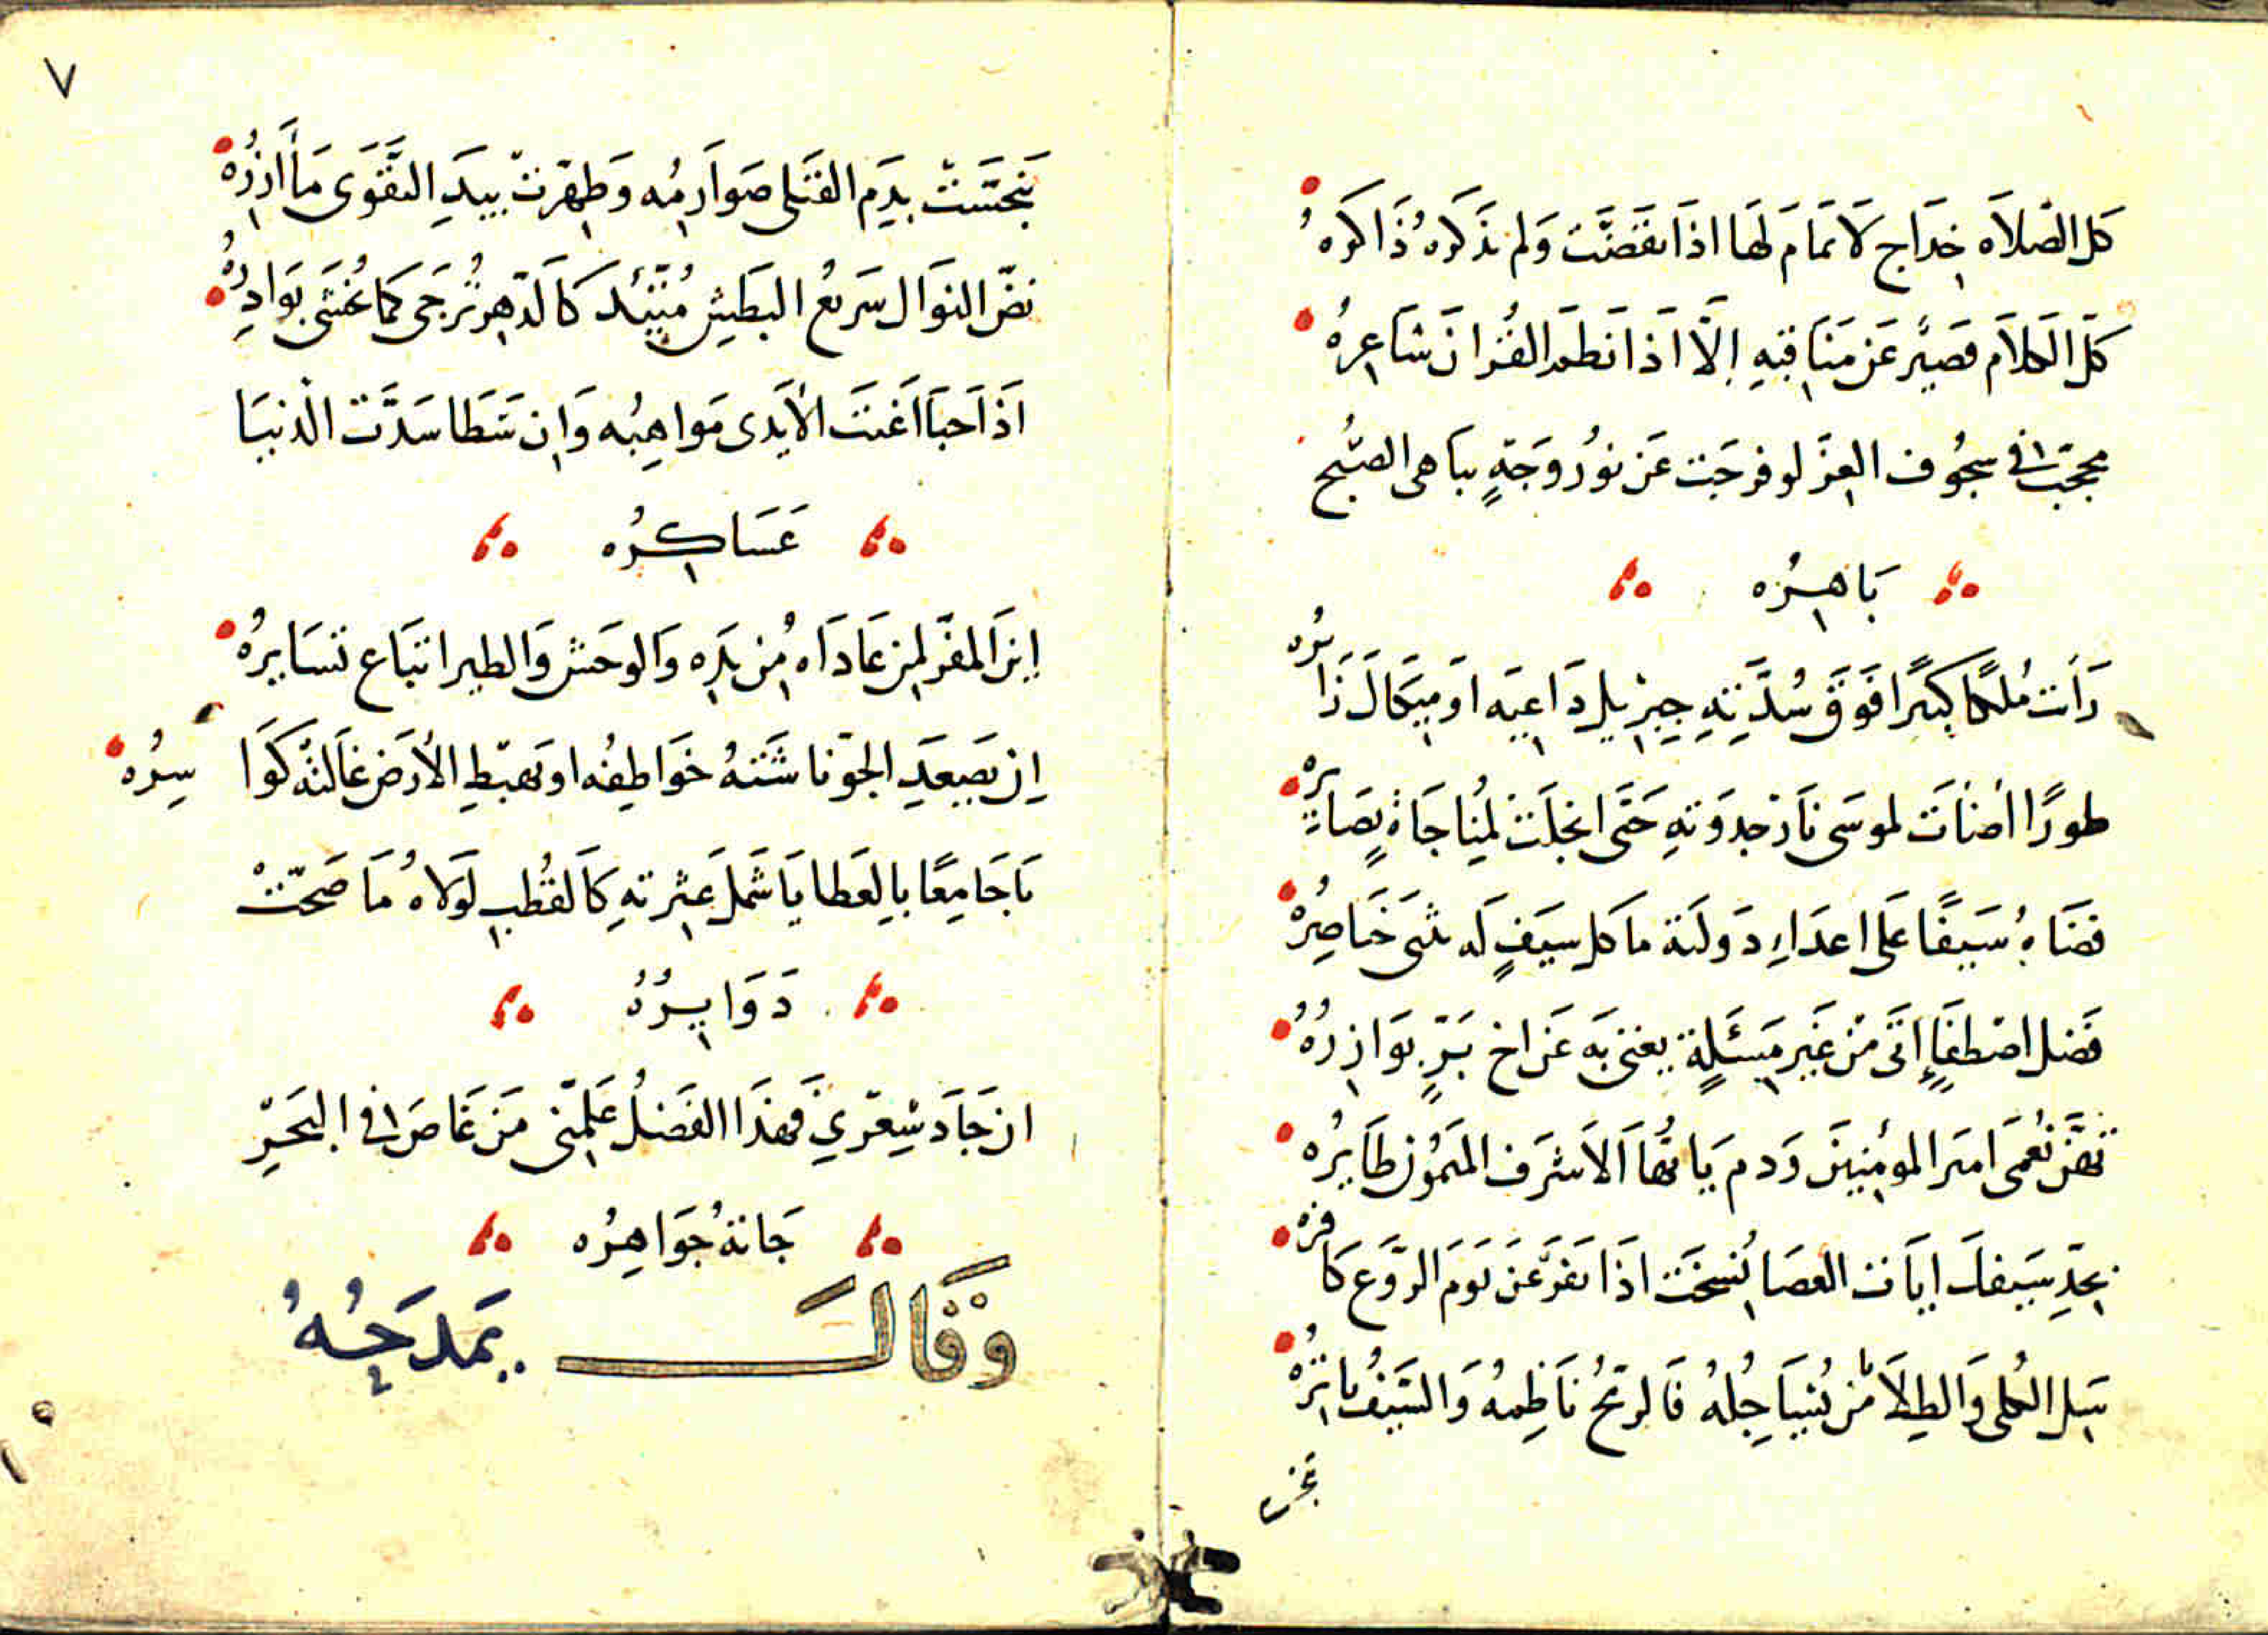 كل الصّلاَه خِدَاج لَا تَمَامَ لَهَا اذَا نقَضَّت وَلم يذكرهُ ذَاكرهُ
كلّ الكلاَم قصَيرً عَن مَنَاقبهِ إلَّا اذَا نَطَم القُرانَ شَاعِرهُ
محجّب في سجُوف العِزّ لو فرجَت عَن نورُ وَجَهٍ يباَهى الصّبح
بَاهِرُه
رَأت مُلكًا كبيرًا فَوَق سُدَّتِهِ جِبرِيل دَاعِيَه اوَ مِيكَال زَائره
طورًا اضَات لموسَى نَار جدوَتهِ حَتَّى انجلَت لمُناجَاةٍ بصَايرهُ
نضَاهُ سَيفًا عَلى اعدَاءِ دَولَتة ما كل سيَفٍ لَه تثنى خنَاصِرُه
فَضل اصَطفَاءٍ اتَى مَن غَيرِ مَسئَلةٍ يغنى بَه عَن اخ بَرٍّ يوَازِرُهُ
تهَنَّ نُعْمَى اميَر المومنِينَ وَدم يَا ايّهاَ الاَشرَف الميَمُون طَايرُه
بحِدّ سَيفكَ ايَات العصَا نُسخَت اذَا تفَرعَن يَومَ الرّوَع كَافره
سَل الكُلى وَالطِلَا مَن يُنيَاجِلهُ فَالرمّحُ نَاظِمهُ وَالسَّيفُ نَاثرُهُ
نجّسَت
٧
نَجّسَتْ بِدَمِ القَتَلى صَوَارِمُه وَطهِّرَتْ بيَدِ التقَّوَى مَأازرُهُ
نضّ النوَال سَريعُ البَطِشِ مُتّئِد كَالدّهِر تُرجَى كمَا تُخشَى بوَادِرُهُ
اذَا حَبَا اغنَت الأَيدَى مَواهِبُه وَإِن سَطا سَدَّت الدّنيَا
عَسَاكِرُه
اينَ المفَرّ لِمن عَادَاه مُن يَدِه وَالوحَش وَالطير اتبَاع تسَايرُهُ
ان يَصعَدِ الجوّ ناشَتهُ خوَاطِفُه او تهَبّطِ الأَرَضَ غَالتهُ كوَا سِرُه
يَا جَامِعًا بالعَطايَا شَملَ عِتَرتهِ كَالقُطبِ لَولَاهُ مَا صَحّتْ
دَوَايِرُهُ
ان جَادَ شِعْرِي فهَذَا الفَضلُ عَلمّنَى مَن غَاصَ في البَحَرِ
جَاتهُ جوَاهِرُه
وَقَالَ يَمَدَحُهُ